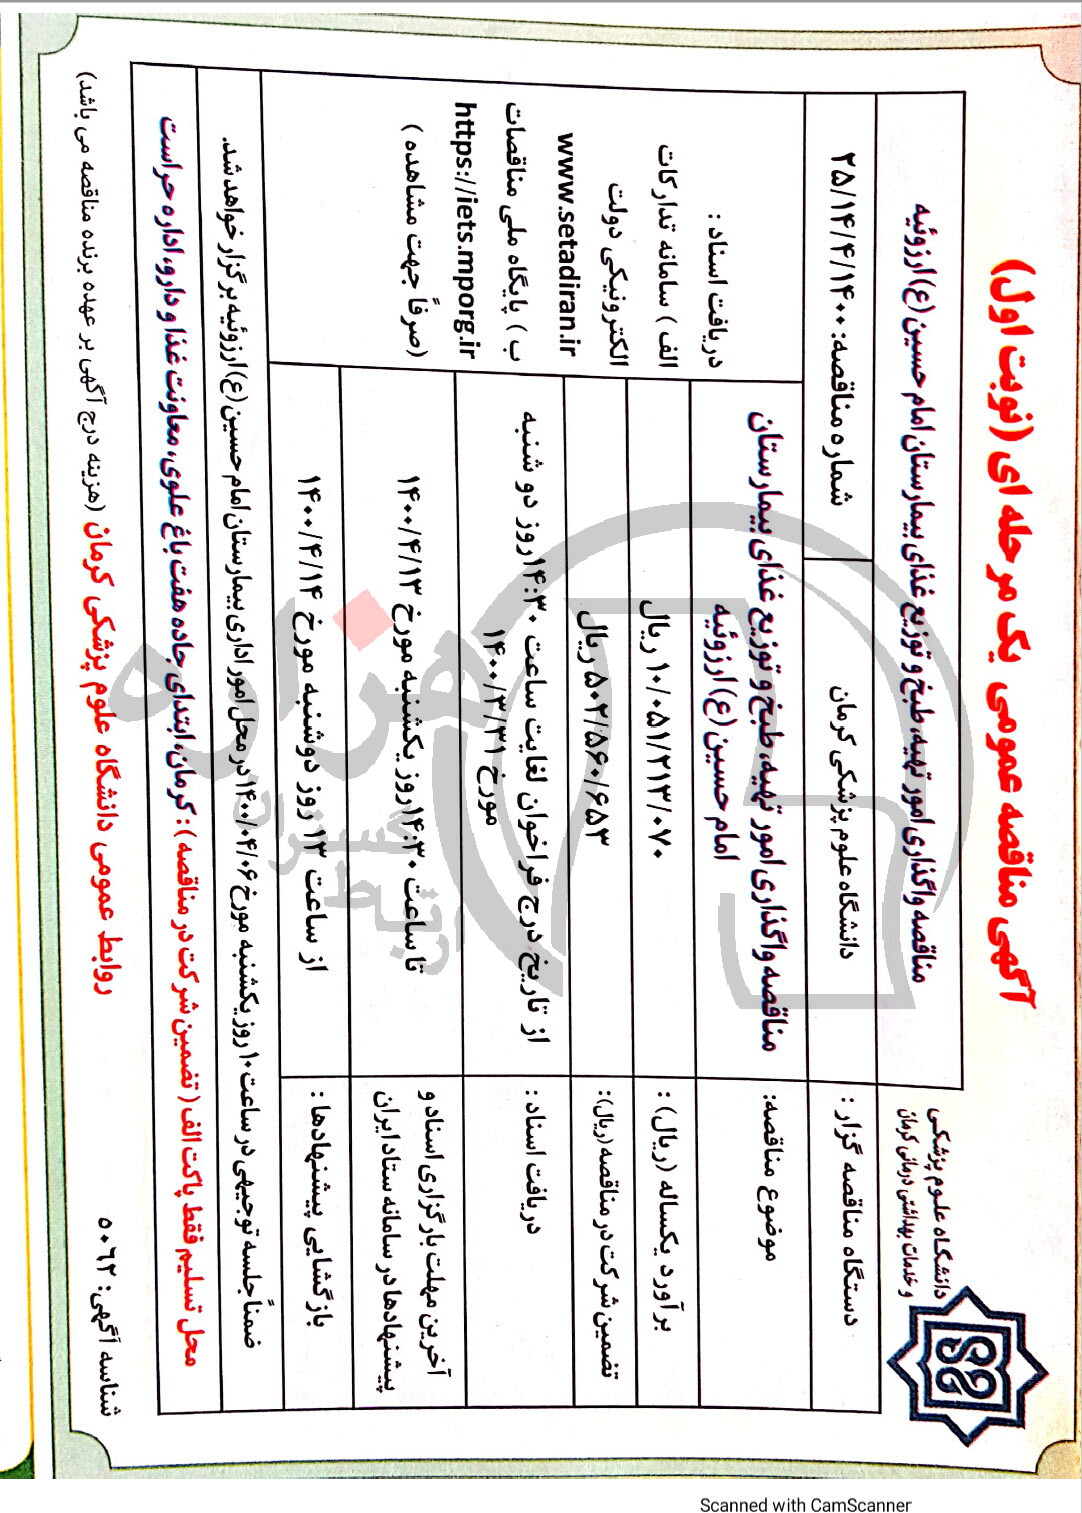 آگهی مناقصه عمومی یک مرحله ای (نوبت اول)
دانشگاه علوم پزشکی
و خدمات بهداشتی درمانی کرمان
مناقصه واگذاری امور تهیه، طبخ و توزیع غذای بیمارستان امام حسین (ع) ارزوئیه
دستگاه مناقصه گزار :
دانشگاه علوم پزشکی کرمان
شماره مناقصه: ۲۵/۱۴/۴/۱۴۰۰
موضوع مناقصه:
مناقصه واگذاری امور تهیه، طبخ و توزیع غذای بیمارستان
امام حسین (ع) ارزوئیه
برآورد یکساله (ریال) :
۱۰/۰۵۱/۲۱۳/۰۷۰ ریال
تضمین شرکت در مناقصه (ریال):
۵۰۲/۵۶۰/۶۵۳ ریال
دریافت اسناد :
از تاریخ درج فراخوان لغایت ساعت ۱۴:۳۰روز دو شنبه
مورخ ۱۴۰۰/۳/۳۱
آخرین مهلت بارگزاری اسناد و
پیشنهادها در سامانه ستاد ایران
تا ساعت ۱۴:۳۰روز یکشنبه مورخ ۱۴۰۰/۴/۱۳
بازگشایی پیشنهادها :
از ساعت ۱۳ روز دوشنبه مورخ ۱۴۰۰/۴/۱۴
دریافت اسناد :
الف ) سامانه تدارکات
الکترونیکی دولت
www.setadiran.ir
ب ) پایگاه ملی مناقصات
https://iets.mporg.ir
(صرفاً جهت مشاهده )
ضمناً جلسه توجیهی در ساعت ۱۰ روز یکشنبه مورخ ۱۴۰۰/۰۴/۰۶ در محل امور اداری بیمارستان امام حسین (ع) ارزوئیه برگزار خواهد شد.
محل تسلیم فقط پاکت الف ( تضمین شرکت در مناقصه ) : کرمان، ابتدای جاده هفت باغ علوی، معاونت غذا و دارو، اداره حراست
شناسه آگهی: ۵۰۶۲
روابط عمومی دانشگاه علوم پزشکی کرمان (هزینه درج آگهی بر عهده برنده مناقصه می باشد)
Scanned with CamScanner